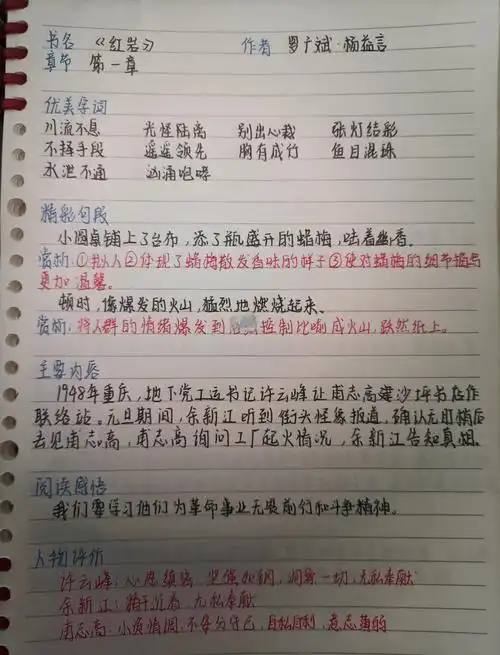 书名 《红岩》 作者 罗广斌·杨益言
章节 第一章
优美字词
川流不息 光怪陆离 别出心裁 张灯结彩
不择手段 遥遥领先 胸有成竹 鱼目混珠
水泄不通 汹涌咆哮
精彩句段
小圆桌铺上了台布,添了瓶盛开的蜡梅,吐着幽香。
赏析:①拟人②体现了蜡梅散发香味的样子③使对蜡梅的细节描写
更加温馨。
顿时,像爆发的火山,猛烈地燃烧起来。
赏析:将人群的情绪爆发到 控制比喻成火山,跃然纸上。
主要内容
1948年重庆,地下党工运书记许云峰让甫志高建沙坪书店作
联络站。元旦期间,余新江听到街头怪象报道,确认无盯梢后
去见甫志高,甫志高询问工厂起火情况,余新江告知真相。
阅读感悟
我们要学习他们为革命事业无畏前行和斗争精神。
人物评价
许云峰:心思缜密 坚强如钢,洞察一切,无私奉献
余新江: 无私奉献
甫志高:小资情调,不安分守己,自私自利,意志薄弱